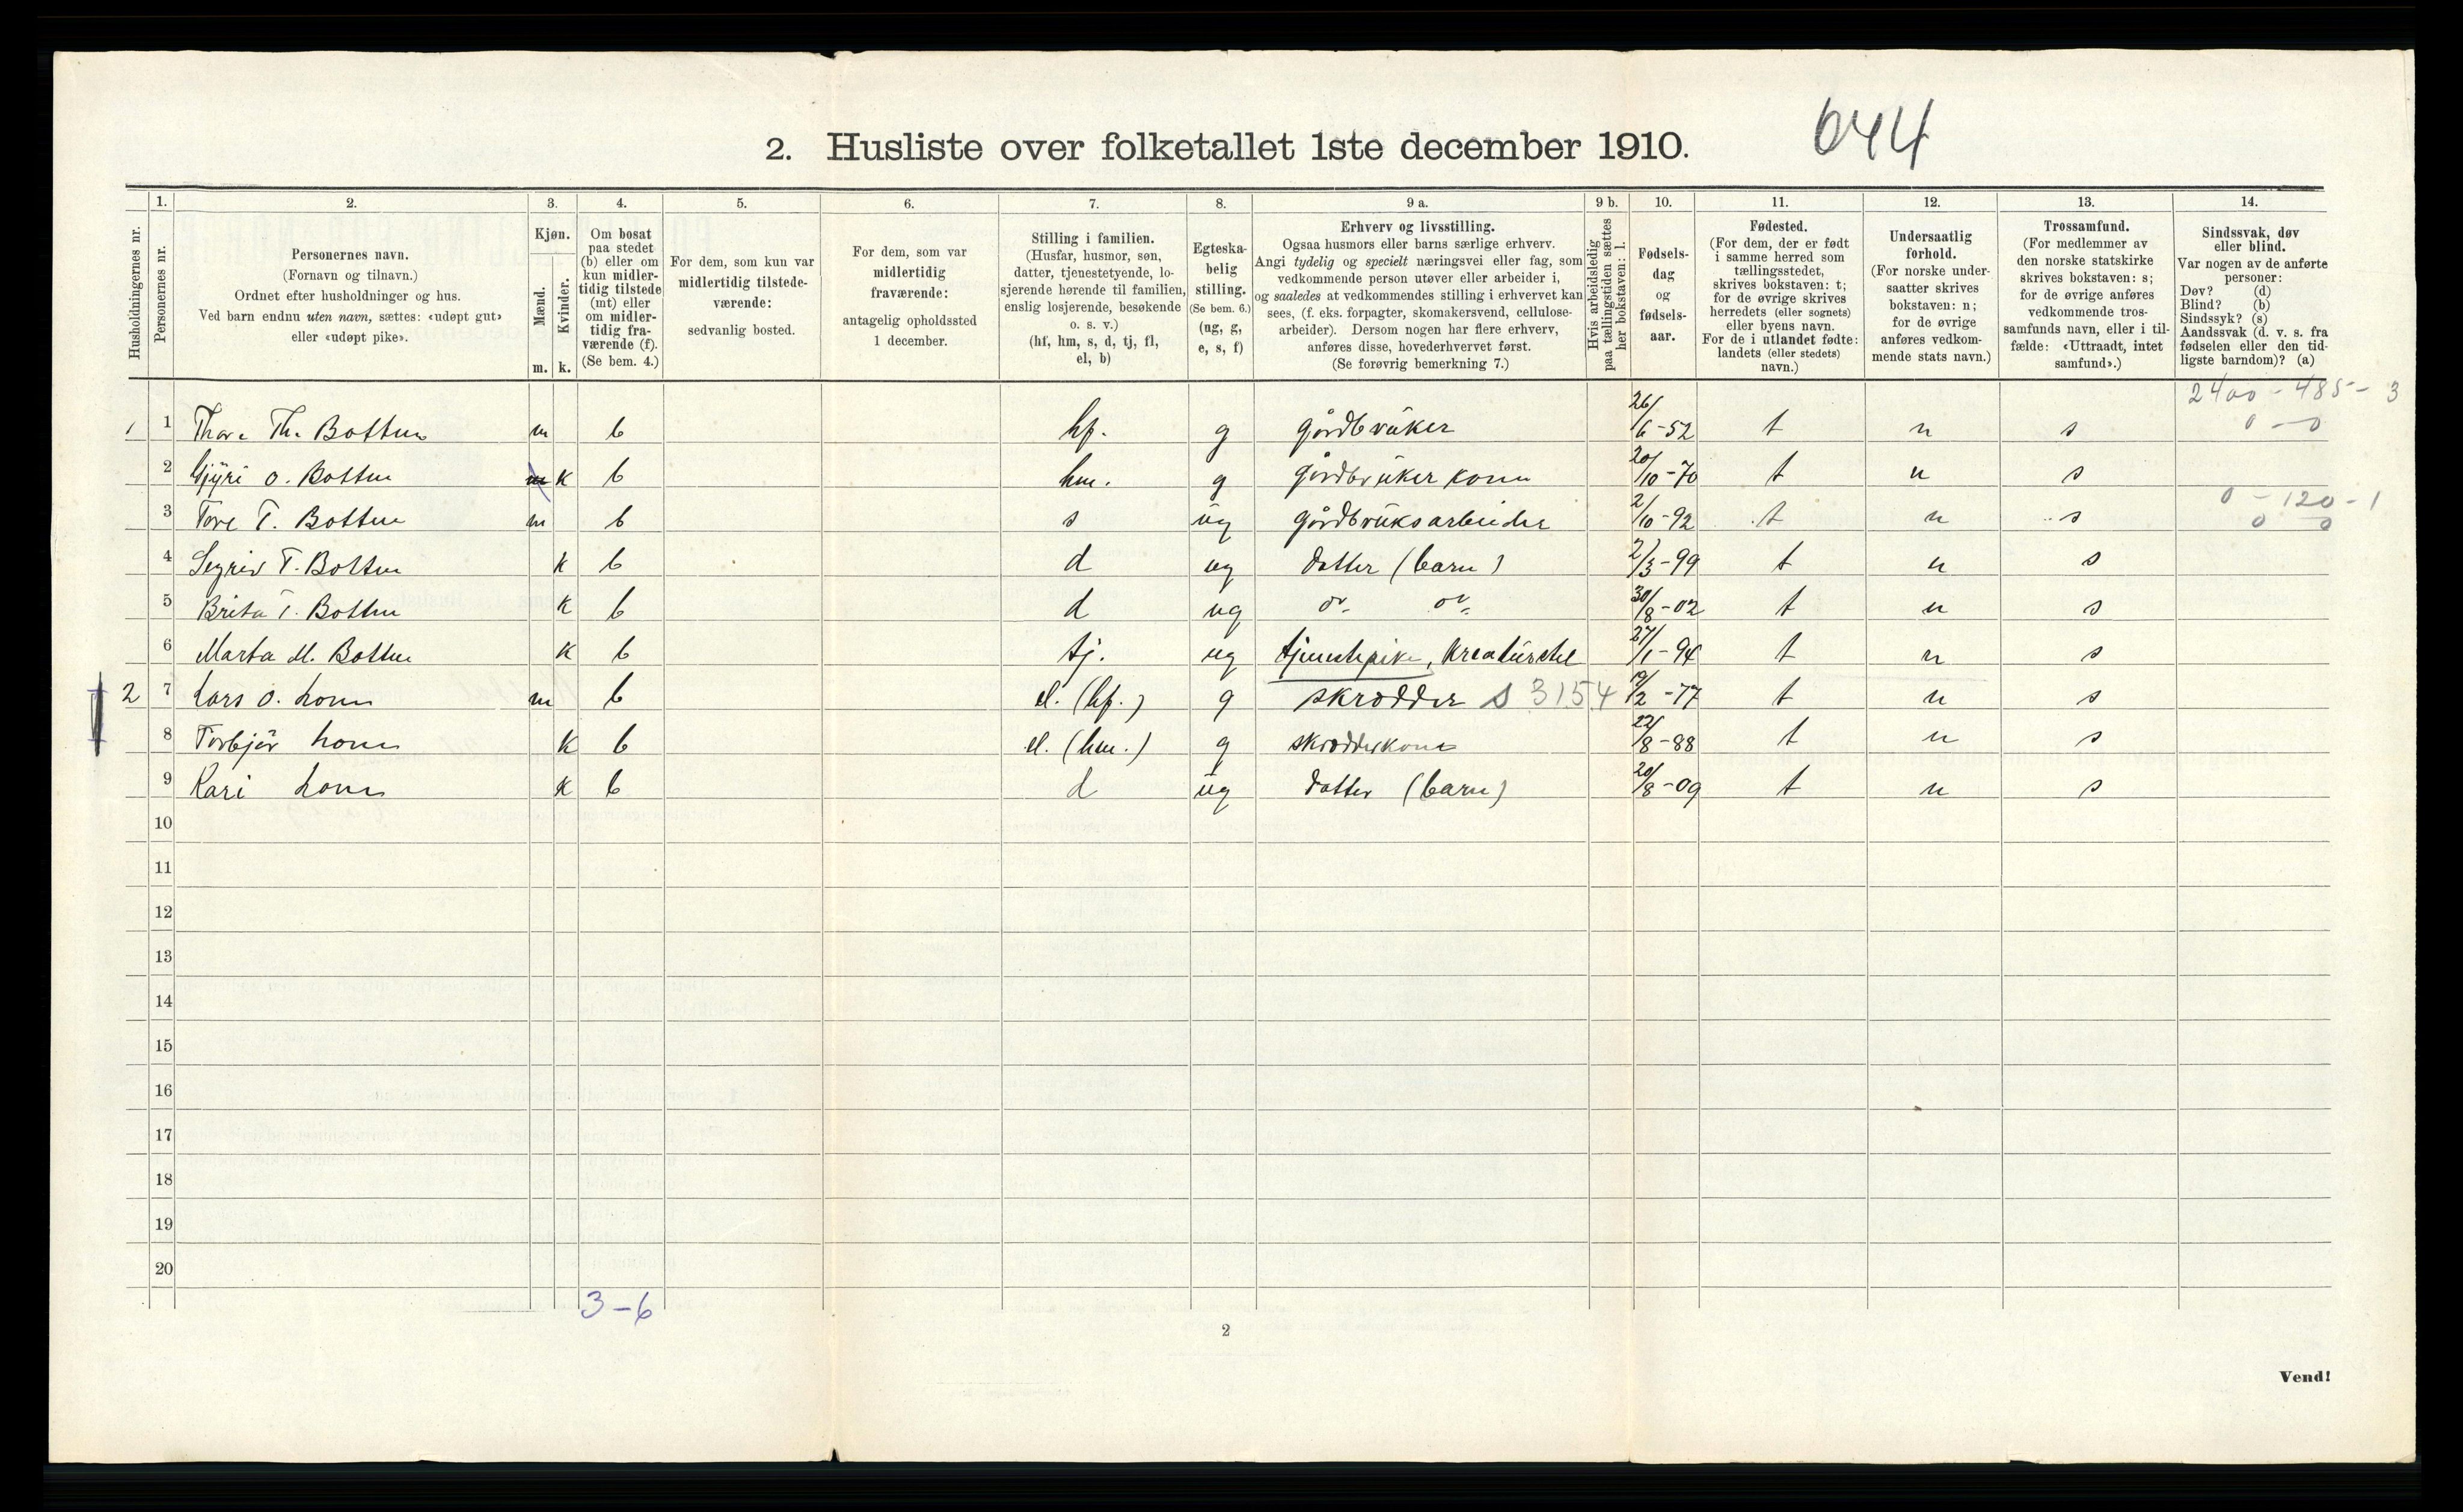 644
2. Husliste over folketallet 1ste december 1910.
Husholdningernes nr.
1. Personernes nr.
2. Personernes navn.
(Fornavn og tilnavn.)
Ordnet efter husholdninger og hus.
Ved barn endnu uten navn, sættes: «udøpt gut»
eller «udøpt pike».
3. Kjøn.
Mænd. m.
Kvinder. k.
4. Om bosat
paa stedet
(b) eller om
kun midler-
tidig tilstede
(mt) eller
om midler-
tidig fra-
værende (f).
(Se bem. 4.)
5. For dem, som kun var
midlertidig tilstede-
værende:
sedvanlig bosted.
6. For dem, som var
midlertidig
fraværende:
antagelig opholdssted
1 december.
7. Stilling i familien.
(Husfar, husmor, søn,
datter, tjenestetyende, lo-
sjerende hørende til familien,
enslig losjerende, besøkende
o. s. v.)
(hf, hm, s, d, tj, fl,
el, b)
8. Egteska-
belig
stilling.
(Se bem. 6.)
(ug, g,
e, s, f)
9 a. Erhverv og livsstilling.
Ogsaa husmors eller barns særlige erhverv.
Angi tydelig og specielt næringsvei eller fag, som
vedkommende person utøver eller arbeider i,
og saaledes at vedkommendes stilling i erhvervet kan
sees, (f. eks. forpagter, skomakersvend, cellulose-
arbeider). Dersom nogen har flere erhverv,
anføres disse, hovederhvervet først.
(Se forøvrig bemerkning 7.)
9 b. Hvis arbeidsledig
paa tællingstiden sættes
her bokstaven: l.
10. Fødsels-
dag
og
fødsels-
aar.
11. Fødested.
(For dem, der er født
i samme herred som
tællingsstedet,
skrives bokstaven: t;
for de øvrige skrives
herredets (eller sognets)
eller byens navn.
For de i utlandet fødte:
landets (eller stedets)
navn.)
12. Undersaatlig
forhold.
(For norske under-
saatter skrives
bokstaven: n;
for de øvrige
anføres vedkom-
mende stats navn.)
13. Trossamfund.
(For medlemmer av
den norske statskirke
skrives bokstaven: s;
for de øvrige anføres
vedkommende tros-
samfunds navn, eller i til-
fælde: «Uttraadt, intet
samfund».)
14. Sindssvak, døv
eller blind.
Var nogen av de anførte
personer:
Døv? (d)
Blind? (b)
Sindssyk? (s)
Aandssvak (d. v. s. fra
fødselen eller den tid-
ligste barndom)? (a)
2400 - 485 - 3
1 1 Thor Th. Bottun m b hf. g gårdbrüker 26/6-52 t n s 0 - 0
2 Gjyri O. Bottun m k b hm. g gårdbrüker kone 20/10-70 t n s
0 - 120 - 1
3 Tore T. Bottun m b s üg gårdbrüksarbeider 2/10-92 t n s 0 0
4 Segrid T. Bottun k b d ug datter (barn) 2/3-99 t n s
5 Brita T. Bottun k b d ug do. do. 30/8-02 t n s
6 Marta M. Bottun k b tj. ug tjenestepike, Kreatürstel 27/1-94 t n s
2 7 Lars O. Lone m b el. (hf.) g skrædder S 3154 /2-77 t n s
8 Torbjør Lone k b el. (hm.) g skrædderkone 22/8-88 t n s
9 Kari Lone k b d üg datter (barn) 20/8-09 t n s
10
11
12
13
14
15
16
17
18
19
20
3-6
2
Vend!